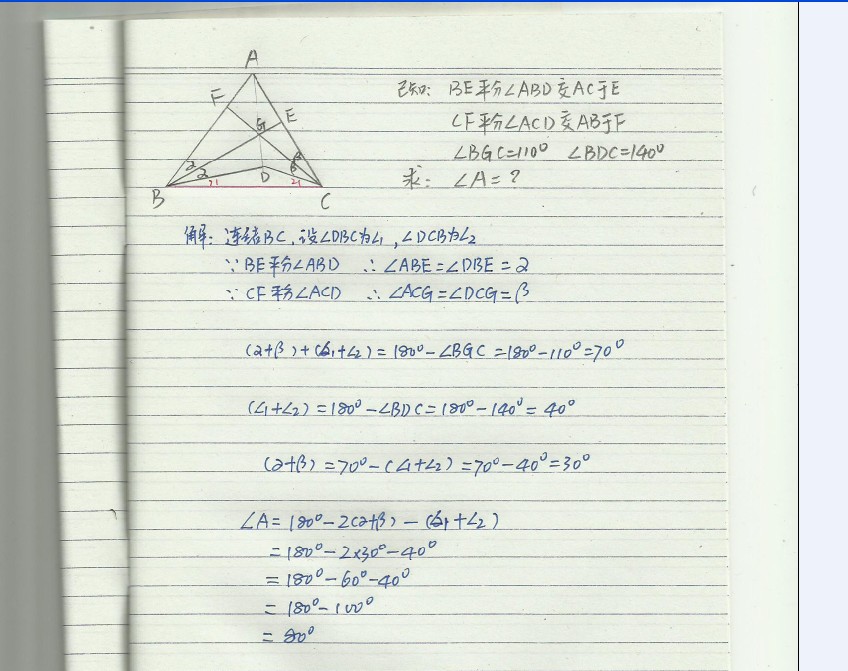 A
F
E
G
D
B
C
2
2
β
β
∠1
∠1
已知: BE平分∠ABD交AC于E
CF平分∠ACD交AB于F
∠BGC=110° ∠BDC=140°
求: ∠A=?
解: 连结BC,设∠DBC为∠1,∠DCB为∠2
∵ BE平分∠ABD ∴ ∠ABE=∠DBE=2
∵ CF平分∠ACD ∴ ∠ACG=∠DCG=β
(2+β)+(∠1+∠2)=180°-∠BGC=180°-110°=70°
(∠1+∠2)=180°-∠BDC=180°-140°=40°
(2+β)=70°-(∠1+∠2)=70°-40°=30°
∠A=180°-2(2+β)-(∠1+∠2)
=180°-2×30°-40°
=180°-60°-40°
=180°-100°
=80°